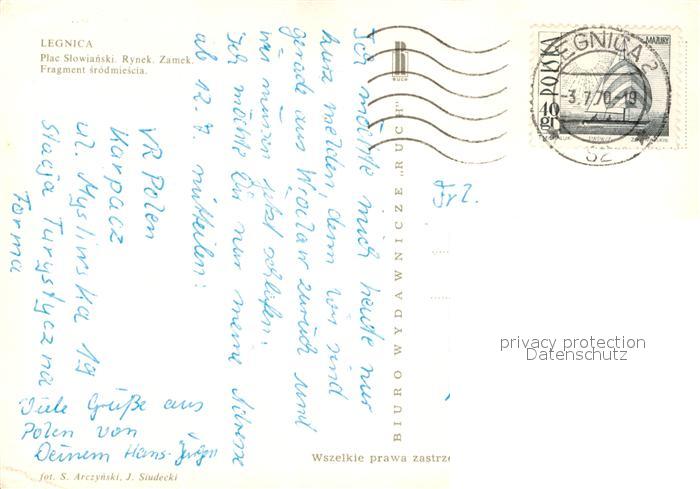 LEGNICA
Plac Słowiański. Rynek. Zamek.
Fragment śródmieścia.
RUCH
BIURO WYDAWNICZE "RUCH"
POLSKA
MAZURY
40 gr
LEGNICA 2
-3.7.70-19
Frl.
Ich möchte mich heute nur
kurz melden, denn wir sind
gerade aus Wrocław zurück und
wir müssen jetzt schlafen.
Ich möchte Dir nur meine Adresse
ab 12.7. mitteilen:
VR Polen
Karpacz
ul. Myśliwska 19
Stacja Turystyczna
Forma
Viele Grüße aus
Polen von
Deinem Hans-Jürgen
privacy protection
Datenschutz
Wszelkie prawa zastrze
fot. S. Arczyński, J. Siudecki